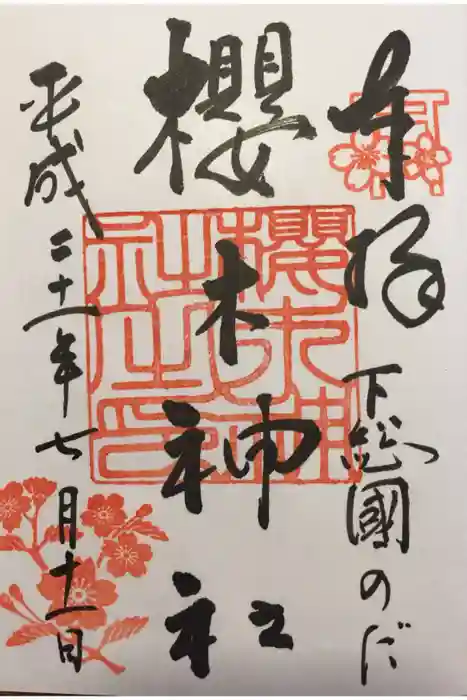 奉拝
下総國のだ
櫻木神社
櫻木神
社之印
平成二十一年七月十一日